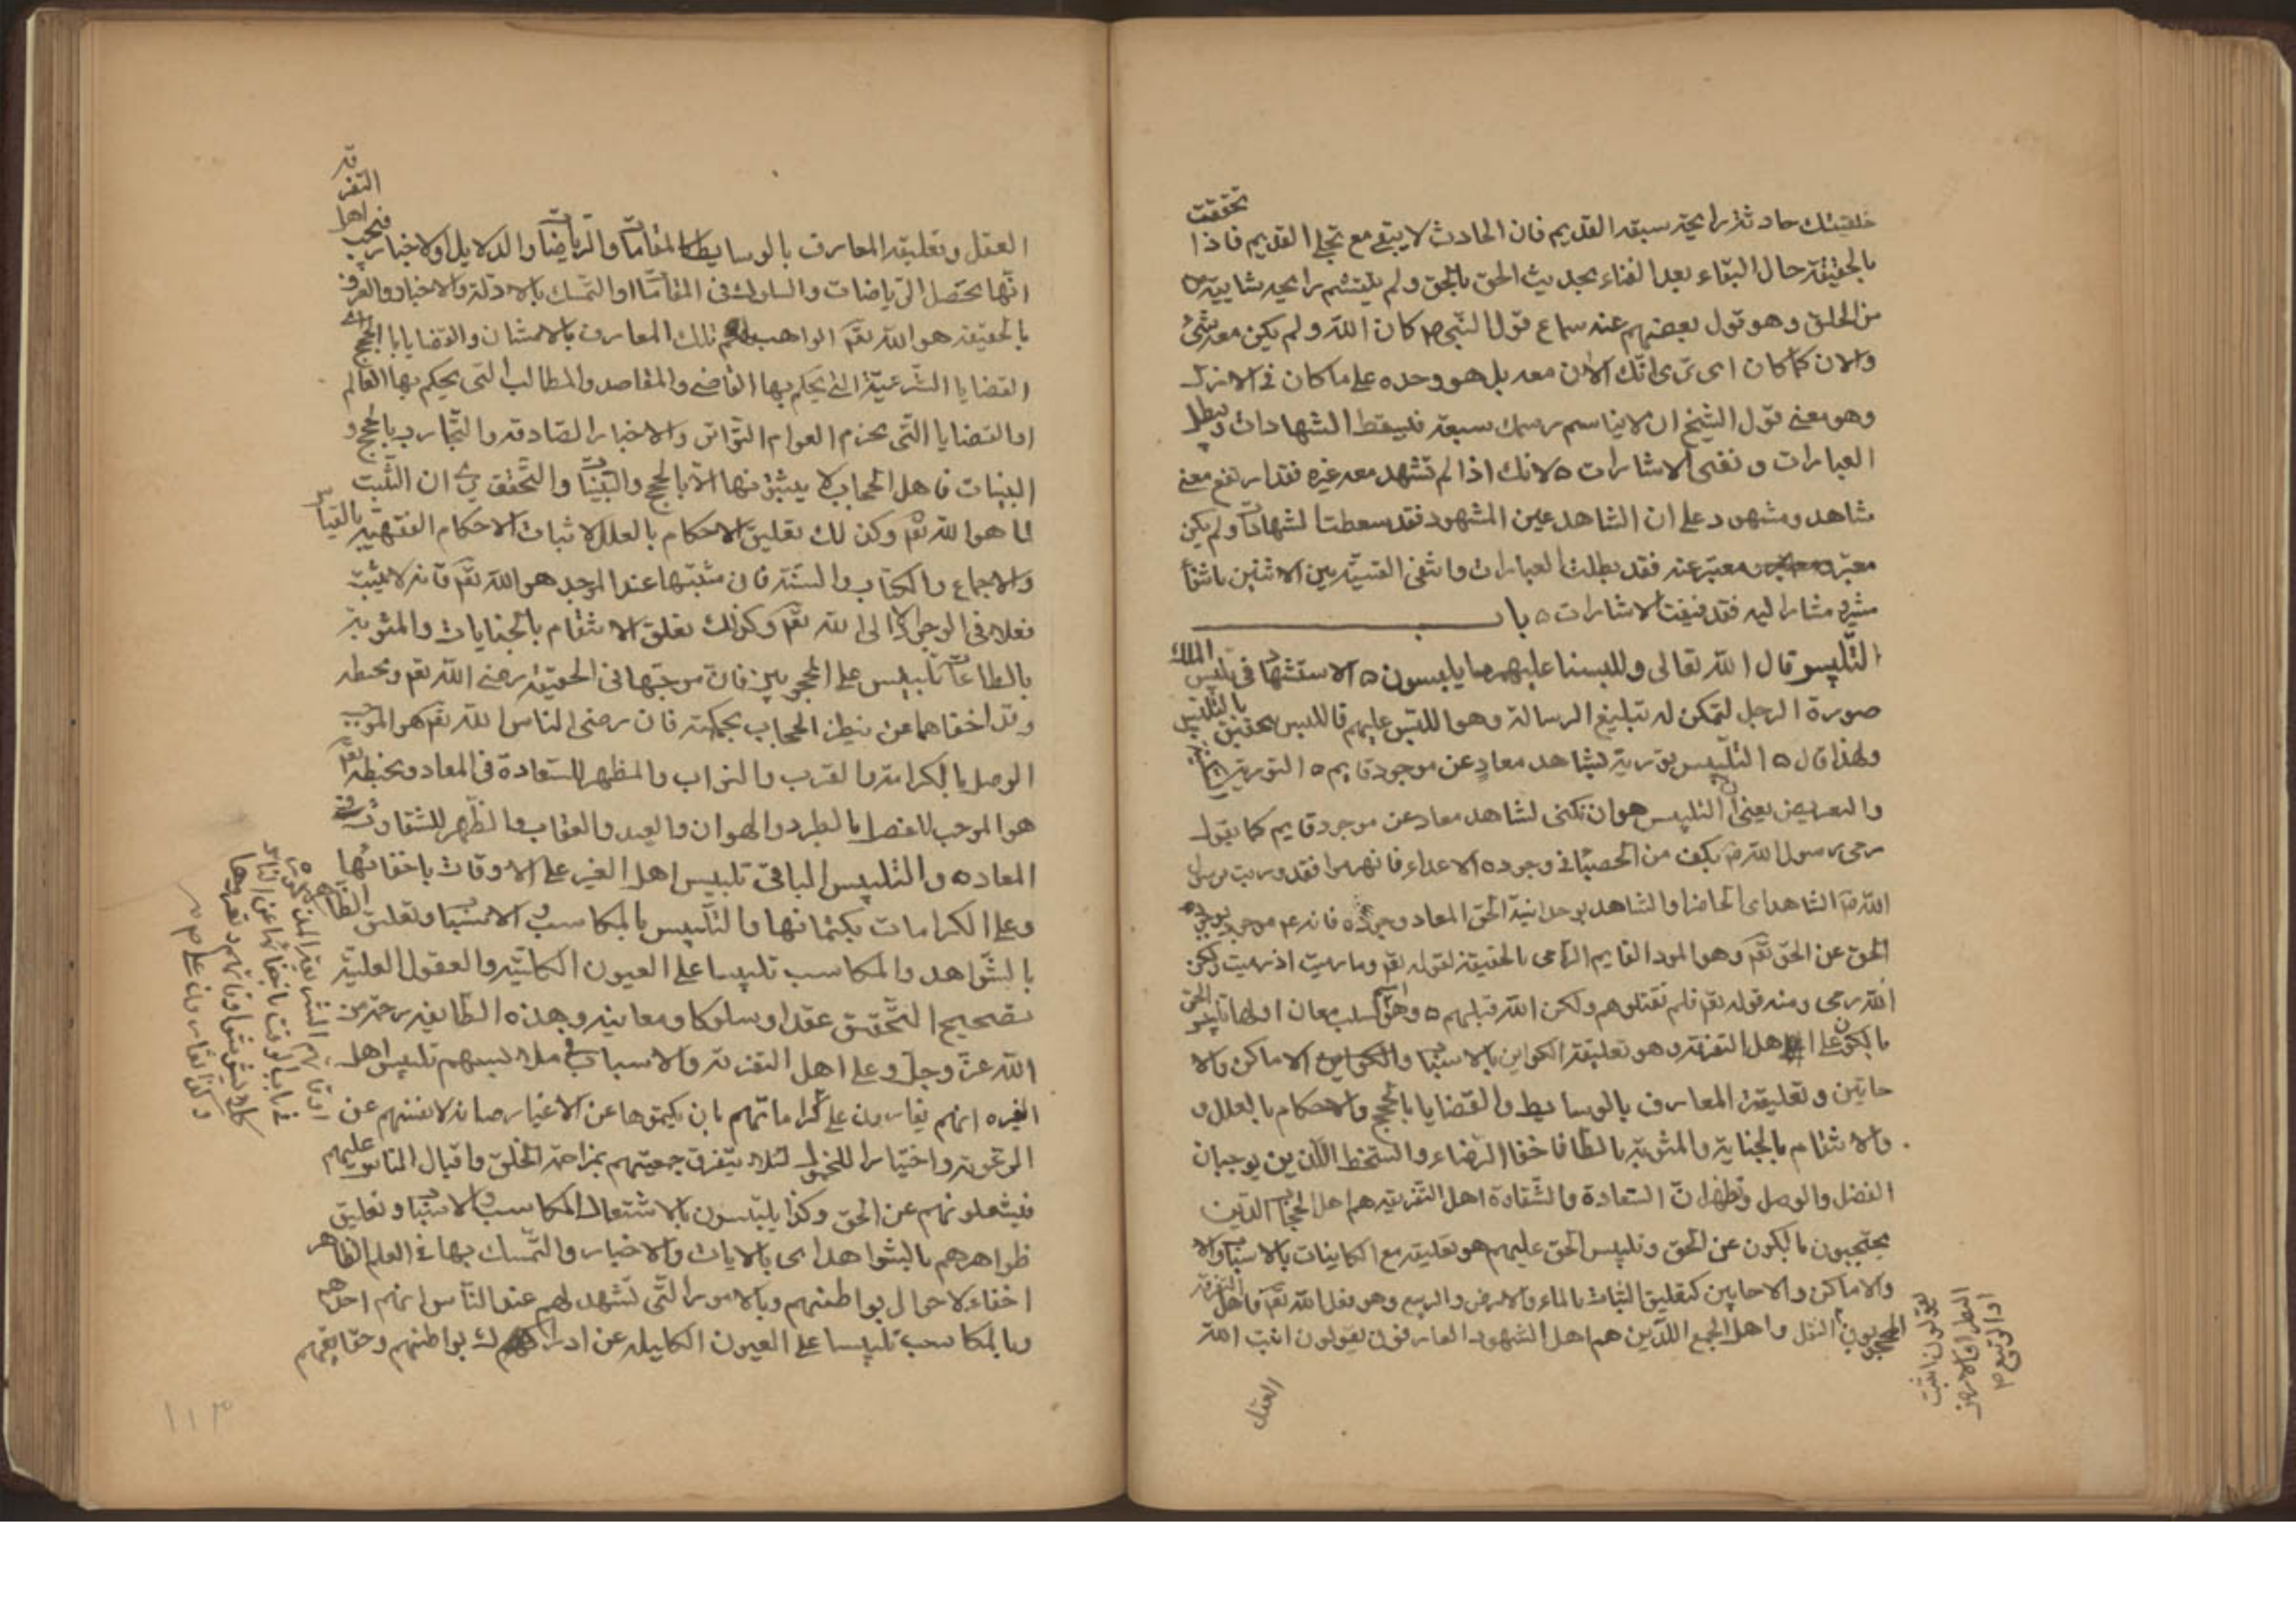 خلقيتك حادثة رايحة سبقه القديم فان الحادث لا يبقى مع تجلى القديم فاذا تحققت
بالحقيقة حال البقاء بعد الفناء بحديث الحق بالحق ولم يلتئم رايحة شايبة
من الخلق وهو قول بعضهم عند سماع قول النبي ص كان الله ولم يكن معه شئ
والان كما كان اى ترى انك الان معه بل هو وحده على ما كان فى الازل
وهو معنى قول الشيخ ان لا يناسم رسمك سبقه فيسقط الشهادات ويبطل
العبارات ونفى الاشارات ه لانك اذا لم تشهد معه غيره فقد ارتفع معنى
شاهد ومشهود على ان الشاهد عين المشهود فقد سقطت الشهادات ولم يكن
معبر ومعبر عنه فقد بطلت العبارات وانتفى القسمة بين الاثنين بانتفاء
مشير ومشار اليه فقد فنيت الاشارات ه باب
التلبيس قال الله تعالى وللبسنا عليهم ما يلبسون ه الاستشهاد فى تلبيس الملك
صورة الرجل لتمكن له تبليغ الرسالة وهو اللبس عليهم فاللبس تحقيق
ولهذا قال ه التلبيس تورية بشاهد معار عن موجود قايم ه التورية
والتعريض يعنى ان التلبيس هو ان تكنى لشاهد معار عن موجود قايم كما يقول
رمى رسول الله ص بكف من الحصباء فى وجوه الاعداء فانهزموا فقد وريت برسول
الله ص الشاهد اى الحاضر والشاهد بوحدانية الحق المعار وجوده فانه ع موجود بوجود
الحق عن الحق تعم وهو المود القايم الرامى بالحقيقة لقوله تعم وما رميت اذ رميت ولكن
الله رمى ومنه قوله تعم فلم تقتلوهم ولكن الله قتلهم ه وهو اسم لثلث معان اولها تلبيس الحق
بالكون على اهل التفرقة وهو تعليقه الكواين بالاسباب والاماكن والا
حايين وتعليقه المعارف بالوسايط والقضايا بالحجج والاحكام بالعلل و
والانتقام بالجناية والمثوبة بالطاعة فاخفا الرضاء والسخط اللذين يوجبان
الفصل والوصل ويظهران السعادة والشقاوة اهل التفرقة هم اهل الحجاب الذين
يحتجبون بالكون عن الحق وتلبيس الحق عليهم هو تعليقه مع الكاينات بالاسباب والا
والاماكن والاحايين كتعليق النبات بالماء والارض والربيع وهو فعل الله تعم فاهل التفرقة
المحجوبون النقل واهل الجمع اللذين هم اهل الشهود العارفون يقولون انبت الله
يقولون انبت
المطر او الارض
او الربيع ص
العقل
العقل وتعليقه المعارف بالوسايط كالمقامات والرياضات والدلايل والاخبار فيحجب
اهل
التفر
قة
انها يحصل الرياضات والسلوك فى المقامات او التمسك بالادلة والاخبار والمعرف
بالحقيقة هو الله تعم الواهب لهم تلك المعارف بالامتنان والقضايا بالحجج اى
القضايا الشرعية التى يحكم بها القاضى والمقاصد والمطالب التى يحكم بها العالم
او القضايا التى يجزم العوام التواتر والاخبار الصادقة والتجارب بالحجج و
البينات فاهل الحجاب لا يثبتونها الا بالحجج والبينات والتحقق يرى ان المثبت
لها هو الله تعم وكذلك تعليق الاحكام بالعلل لاثبات الاحكام الفقهية بالقياس
والاجماع والكتاب والسنة فان مثبتها عند الموحد هو الله تعم فانه لا يثبت
فعلا فى الوجود الا الى الله تعم وكذلك تعلق الانتقام بالجنايات والمثوبة
بالطاعات تلبيس على المحجوبين فان موجبها فى الحقيقة رضى الله تعم وسخطه
وقد اخفاهما عن نظر الحجاب بحكمته فان رضى الناس الله تعم هو الموجب
الوصل بالكرامة والقرب والثواب والمظهر للسعادة فى المعاد وسخطه تعم
هو الموجب للفصل بالطرد والهوان والعبد والعقاب والمظهر للشقاوة فى
المعاد ه والتلبيس الباقى تلبيس اهل الغير على الاوقات باخفائها
وعلى الكرامات بكتمانها والتلبيس بالمكاسب والاسباب وتعليق الظاهر
بالشواهد والمكاسب تلبيسا على العيون الكليلة والعقول العليلة
بتصحيح التحقيق عقدا وسلوكا ومعاينة وهذه الطايفة رحمة من
الله عز وجل وعلى اهل التفرقة والاسباب فى ملابستهم تلبيس اهل
الغيره انهم يغارون على كراماتهم بان يكتموها عن الاغيار صيانة لانفسهم عن
الرعونة واختيارا للخمول لئلا يتفرق جمعيتهم بمزاحمة الخلق واقبال الناس عليهم
فيشغلونهم عن الحق وكذا يلبسون بالاشتغال المكاسب والاسباب وتعليق
ظواهرهم بالشواهد اى بالايات والاخبار والتمسك بها فى العلم الظاهر
اخفاء لاحوال بواطنهم وبالامور التى تشهد لهم عند الناس انهم احدهم
وبالمكاسب تلبيسا على العيون الكليلة عن ادراك بواطنهم وحقايقهم
١١٣